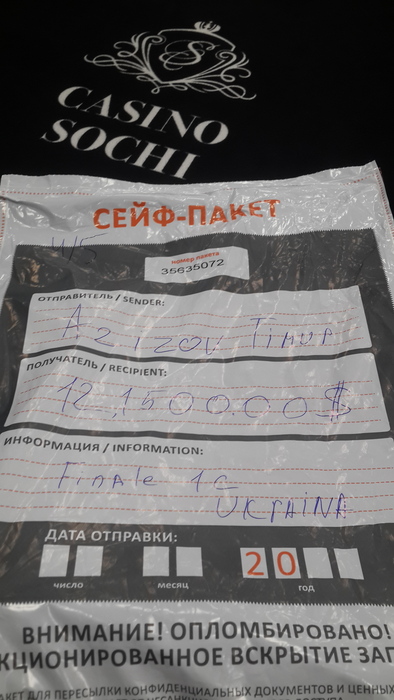 CASINO
SOCHI
СЕЙФ-ПАКЕТ
4/5
номер пакета
35635072
ОТПРАВИТЕЛЬ / SENDER:
Timur
ПОЛУЧАТЕЛЬ / RECIPIENT:
ИНФОРМАЦИЯ / INFORMATION:
Finale 1C
UKRAINA
ДАТА ОТПРАВКИ:
20
число месяц год
ВНИМАНИЕ! ОПЛОМБИРОВАНО!
КЦИОНИРОВАННОЕ ВСКРЫТИЕ ЗАП
АКЕТ ДЛЯ ПЕРЕСЫЛКИ КОНФИДЕНЦИАЛЬНЫХ ДОКУМЕНТОВ И ЦЕННЫХ